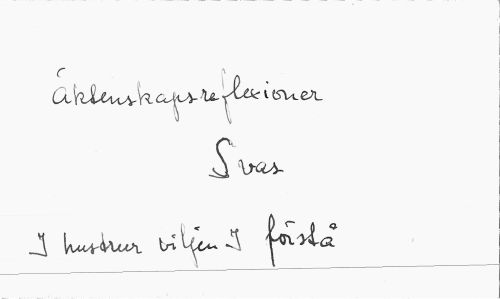 Äktenskapsreflexioner
Svas
I hustrur viljen I förstå